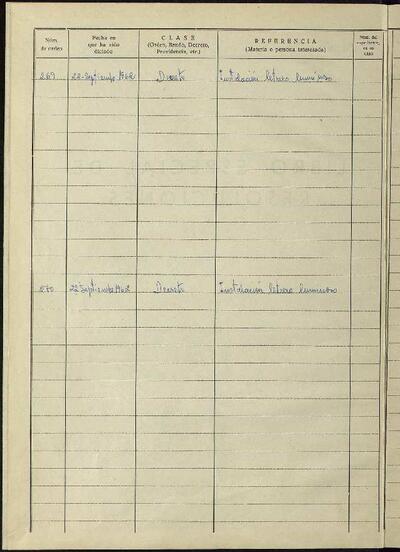 Núm. de orden
Fecha en que ha sido dictado
CLASE (Orden, Bando, Decreto, Providencia, etc.)
REFERENCIA (Materia o persona interesada)
Núm. del
en su caso
269 22 Septiembre 1962 Decreto Instalación letrero luminoso
270 22 Septiembre 1962 Decreto Instalación letrero luminoso